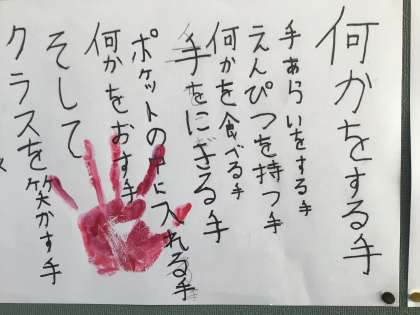 何かをする手
手あらいをする手
えんぴつを持つ手
何かを食べる手
手をにぎる手
ポケットの中に入れる手
何かをおす手
そして
クラスを笑かす手